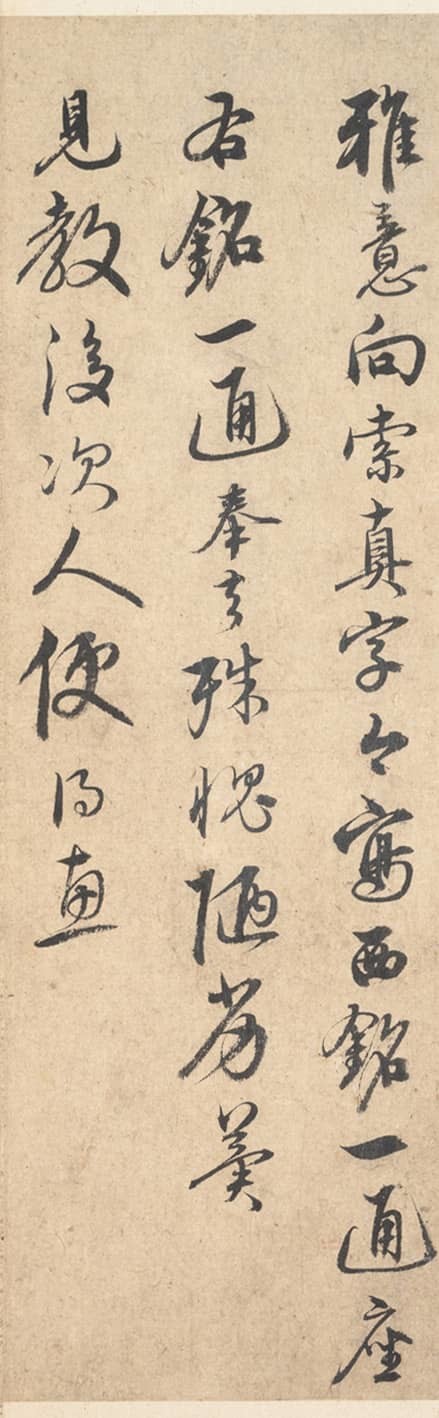 雅意向索真字今寫西銘一通座
右銘一通奉去殊愧陋劣冀
見教後次人便得惠